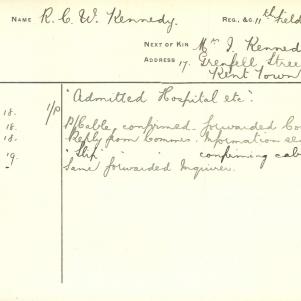 NAME R. C. W. Kennedy. REG. &C 11th Field
NEXT OF KIN Mrs J. Kenned
ADDRESS 17. Grenfell Stree
Kent Town
18. 1/P "Admitted Hospital etc".
18. P/Cable confirmed. forwarded Co
18. Reply from Commrs. Information
19. " Ship " " confirming cab
Same forwarded Inquirer.